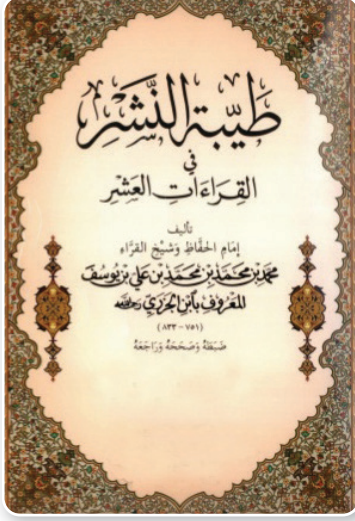 طَيِّبَة النَّشْرِ
فِي
القِرَاءَاتِ العَشْرِ
تأليف
إمَامِ الحُفَّاظِ وَشَيْخِ القُرَّاءِ
مُحَمَّد بْن مُحَمَّد بْن مُحَمَّد بْن عَلِي بْن يُوسُفَ
المَعْرُوف بِابْنِ الجَزَرِي رحمه الله
(٧٥١ - ٨٣٣)
ضَبَطَهُ وَصَحَّحَهُ وَرَاجَعَهُ